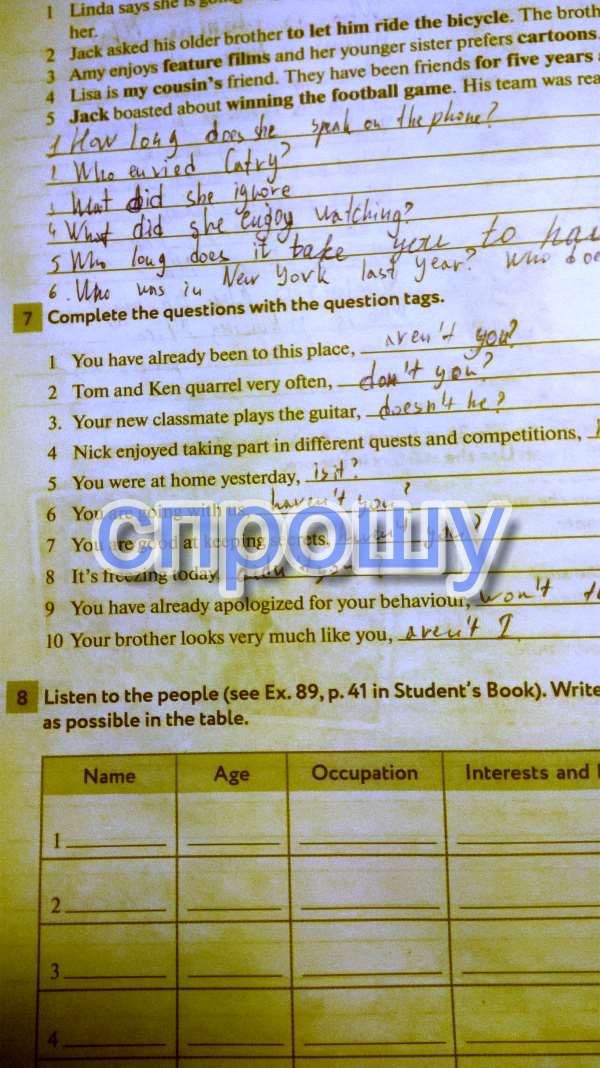 1 Linda says she is
her.
2 Jack asked his older brother to let him ride the bicycle. The broth
3 Amy enjoys feature films and her younger sister prefers cartoons.
4 Lisa is my cousin's friend. They have been friends for five years
5 Jack boasted about winning the football game. His team was rea
1 How long does she speak on the phone?
2 Who envied Catry?
3 What did she ignore
4 What did she enjoy watching?
5 Who long does it take you to
6. Who was in New York last year? Who
7 Complete the questions with the question tags.
1 You have already been to this place, aren't you?
2 Tom and Ken quarrel very often, don't you?
3. Your new classmate plays the guitar, doesn't he?
4 Nick enjoyed taking part in different quests and competitions,
5 You were at home yesterday, isit?
6 You are going with us, haven't you?
7 You are good at keeping secrets, you?
8 It's freezing today,
9 You have already apologized for your behaviour, won't
10 Your brother looks very much like you, aren't I
спрошу
8 Listen to the people (see Ex. 89, p. 41 in Student's Book). Write
as possible in the table.
Name Age Occupation Interests and
1
2
3
4